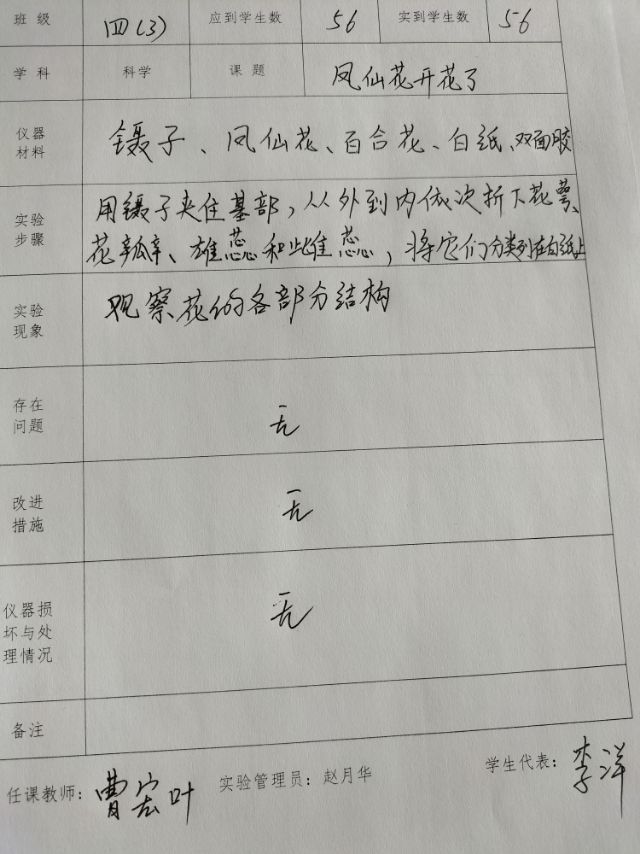 班级 四(3) 应到学生数 56 实到学生数 56
学科 科学 课题 凤仙花开花了
仪器材料 镊子、凤仙花、百合花、白纸、双面胶
实验步骤 用镊子夹住基部，从外到内依次折下花萼、
花瓣、雄蕊和雌蕊，将它们分类列在白纸上
实验现象 观察花的各部分结构
存在问题 无
改进措施 无
仪器损坏与处理情况 无
备注
任课教师：曹宏叶 实验管理员：赵月华 学生代表：李洋